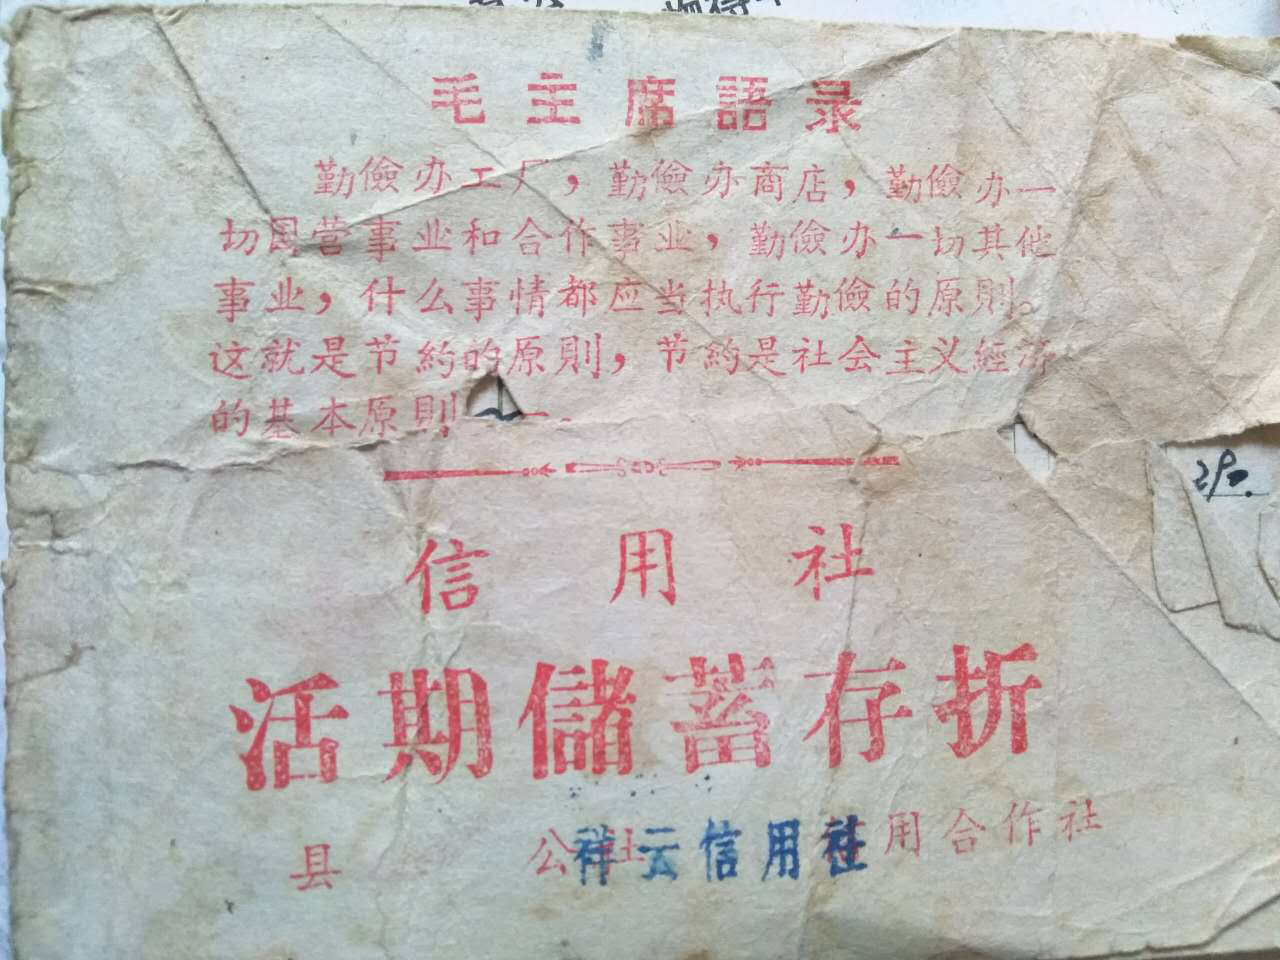 毛主席語录
勤儉办工厂，勤儉办商店，勤儉办一
切国营事业和合作事业，勤儉办一切其他
事业，什么事情都应当执行勤儉的原則。
这就是节約的原則，节約是社会主义經济
的基本原則
信用社
活期儲蓄存折
县 公社 信用合作社
祥云信用社